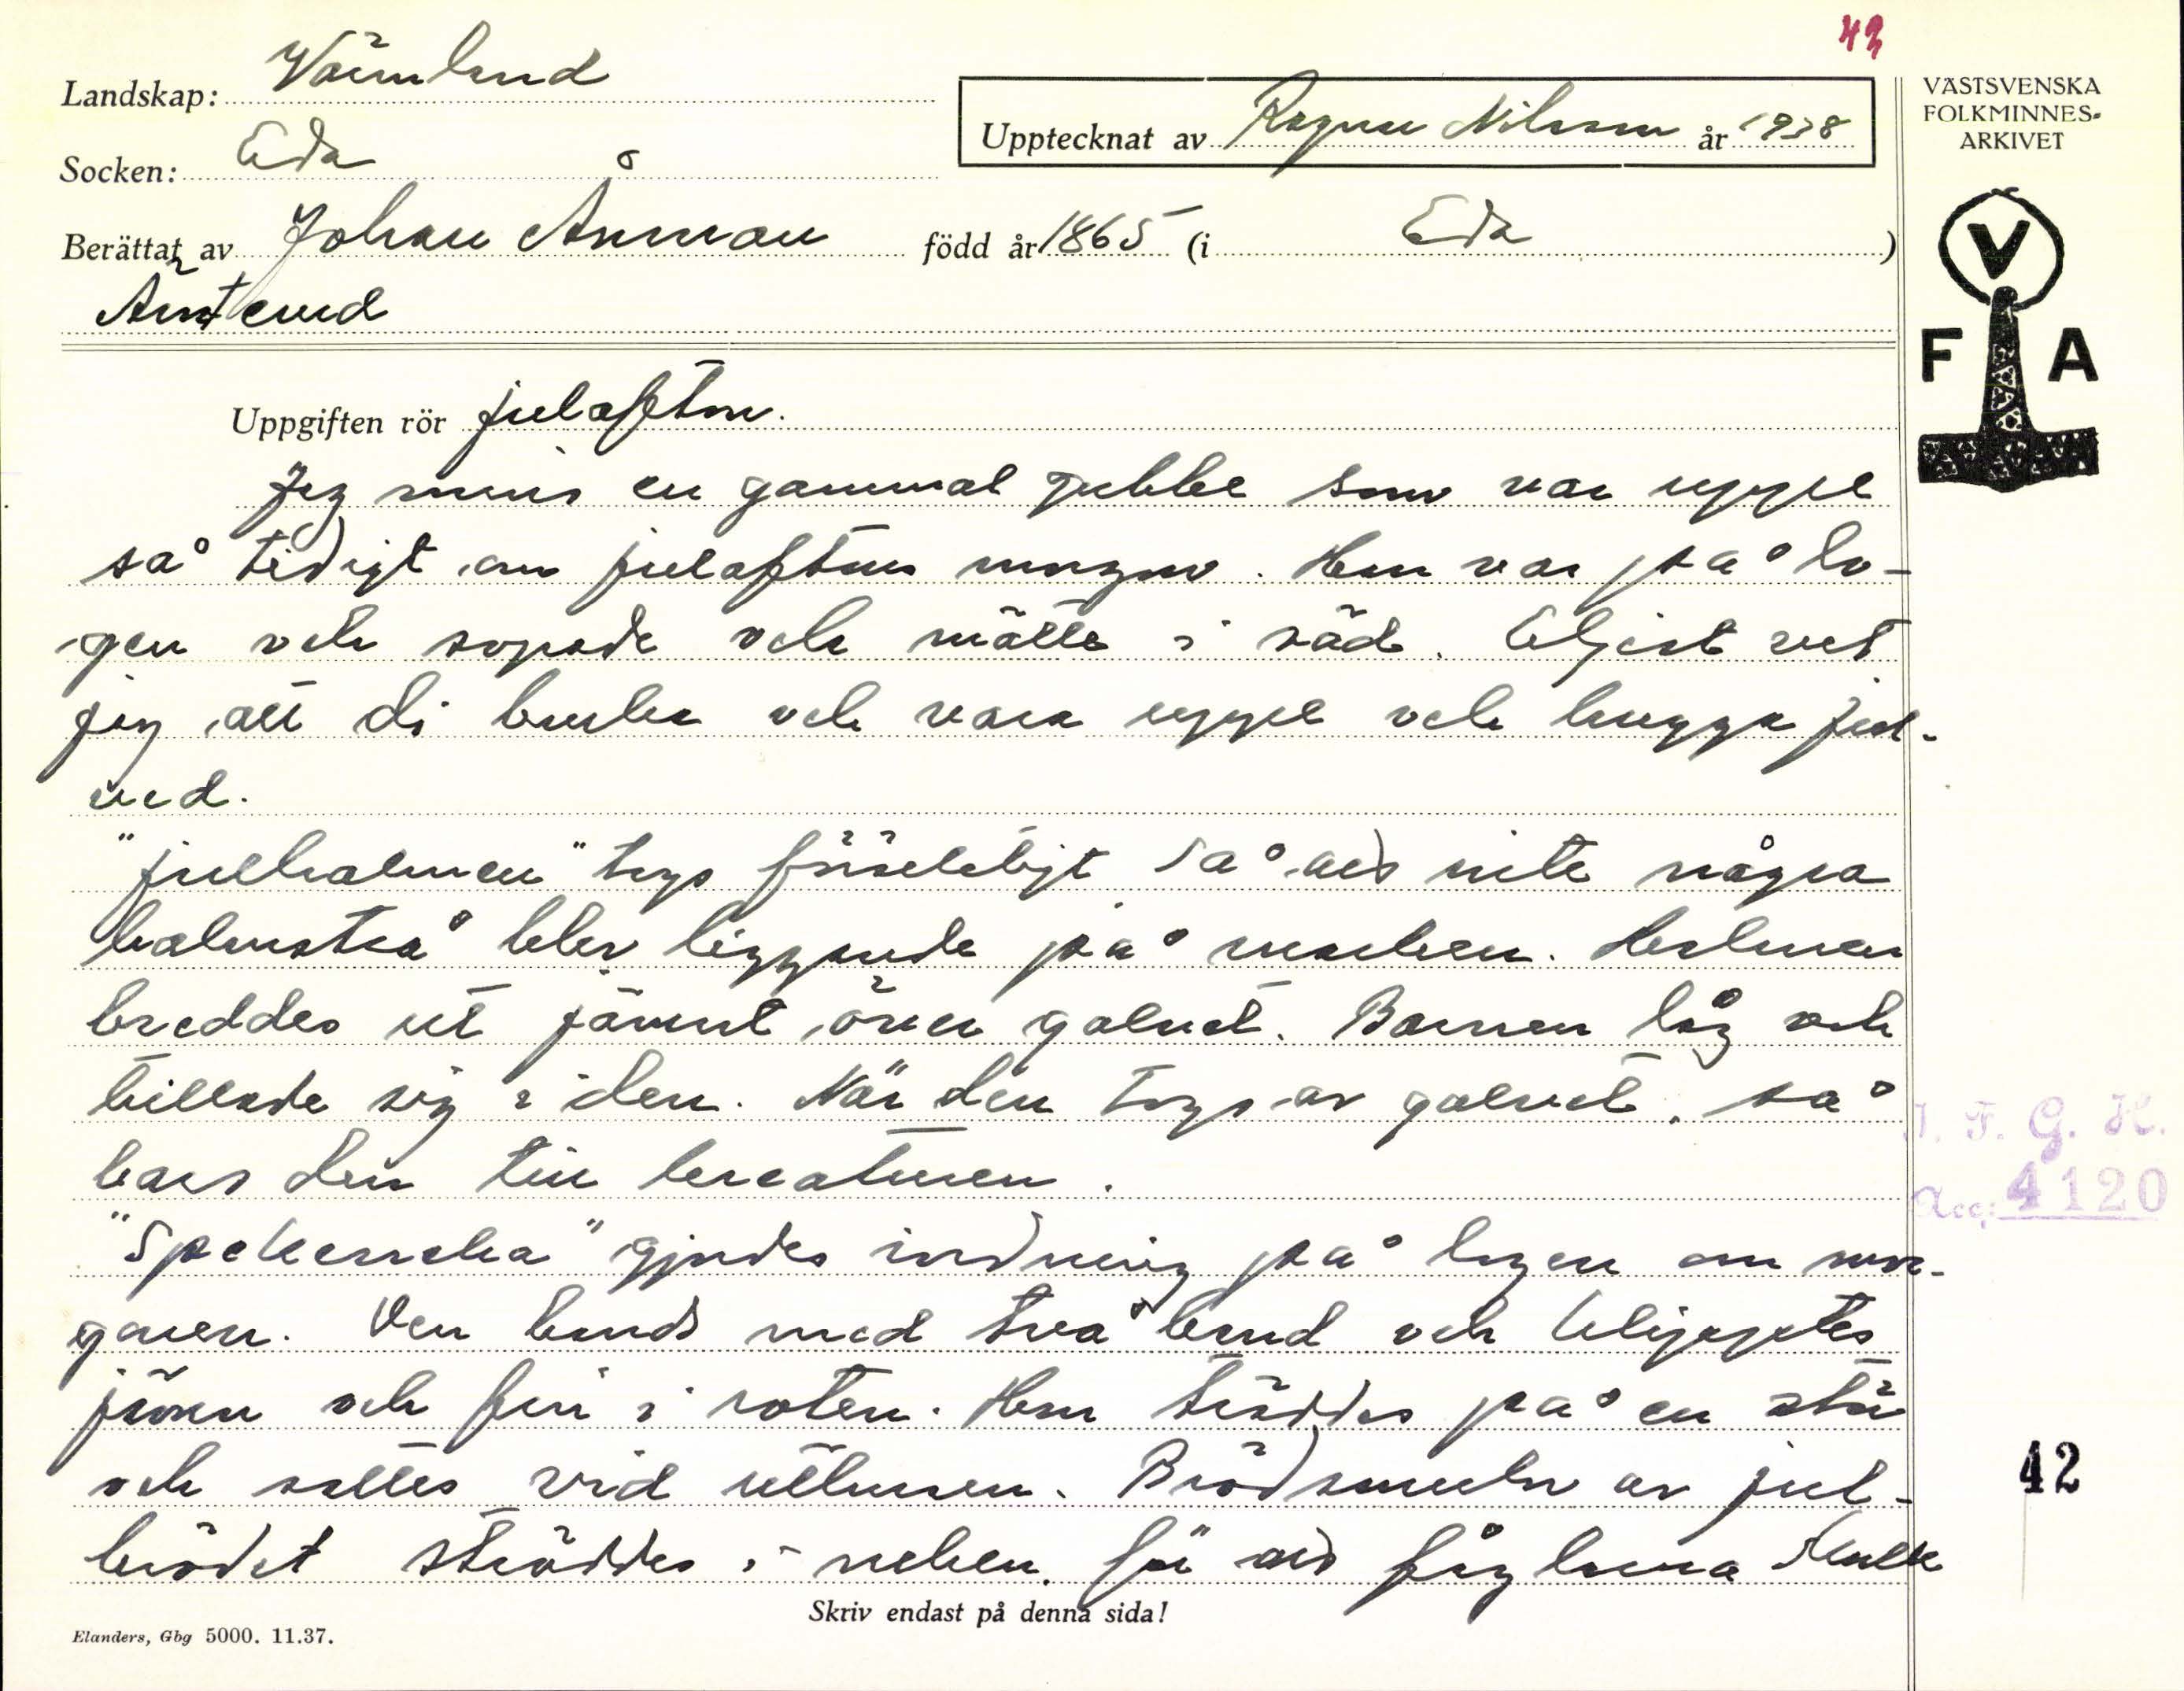 42
Landskap: Värmland
Socken: Eda
Upptecknat av Ragnar Nilsson år 1938
VÄSTSVENSKA
FOLKMINNES-
ARKIVET
Berättat av Johan Ånman född år 1865 (i Eda)
Ämterud
V
F A
Uppgiften rör julafton.
Jeg minns en gammal gubbe som var uppe
så tidigt om julaftons morgon. Han var på lo-
gen och sopade och mätte i säd. Eljest vet
jeg att di bruka och vara uppe och hugga jul-
ved.
"julhalmen" togs försiktigt så att inte några
halmstrå blev liggande på marken. Halmen
breddes ut jämnt över golvet. Barnen låg och
trillade sig i den. När den togs av golvet, så
bars den till kreaturen.
"Spekerneka" gjordes iordning på logen om mor-
gonen. Den bands med två band och klipptes
jämn och fin i roten. Han träddes på en stör
och sattes vid uthusen. Brödsmulor av jul-
brödet ströddes i neken, för att fåglarna skulle
I. F. G. H.
Acc: 4120
42
Skriv endast på denna sida!
Elanders, Gbg 5000. 11.37.